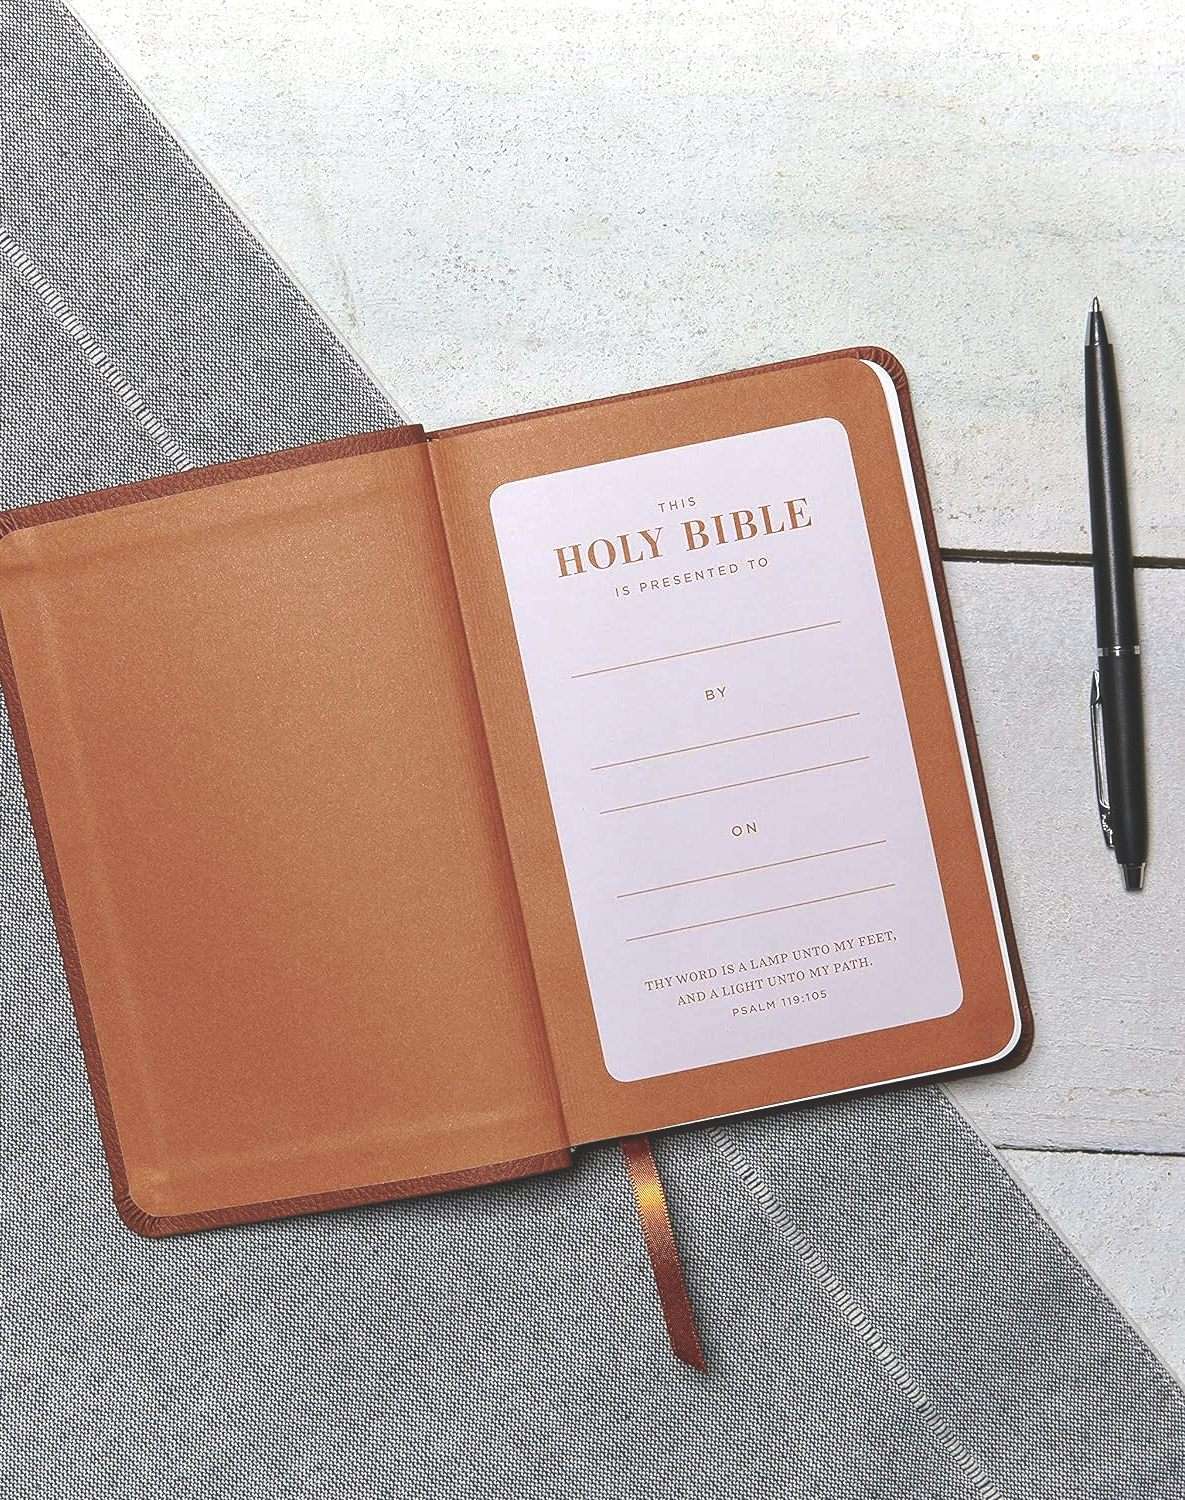 THIS
HOLY BIBLE
IS PRESENTED TO
BY
ON
THY WORD IS A LAMP UNTO MY FEET,
AND A LIGHT UNTO MY PATH.
PSALM 119:105